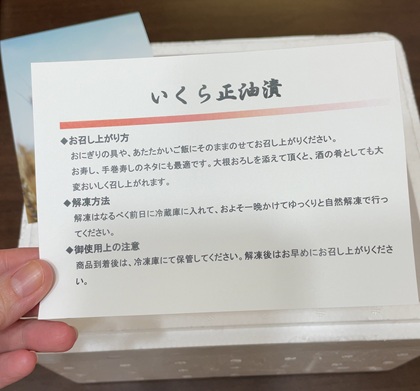 いくら正油漬
◆お召し上がり方
おにぎりの具や、あたたかいご飯にそのままのせてお召し上がりください。
お寿し、手巻寿しのネタにも最適です。大根おろしを添えて頂くと、酒の肴としても大
変おいしく召し上がれます。
◆解凍方法
解凍はなるべく前日に冷蔵庫に入れて、およそ一晩かけてゆっくりと自然解凍で行っ
てください。
◆御使用上の注意
商品到着後は、冷凍庫にて保管してください。解凍後はお早めにお召し上がりくださ
い。